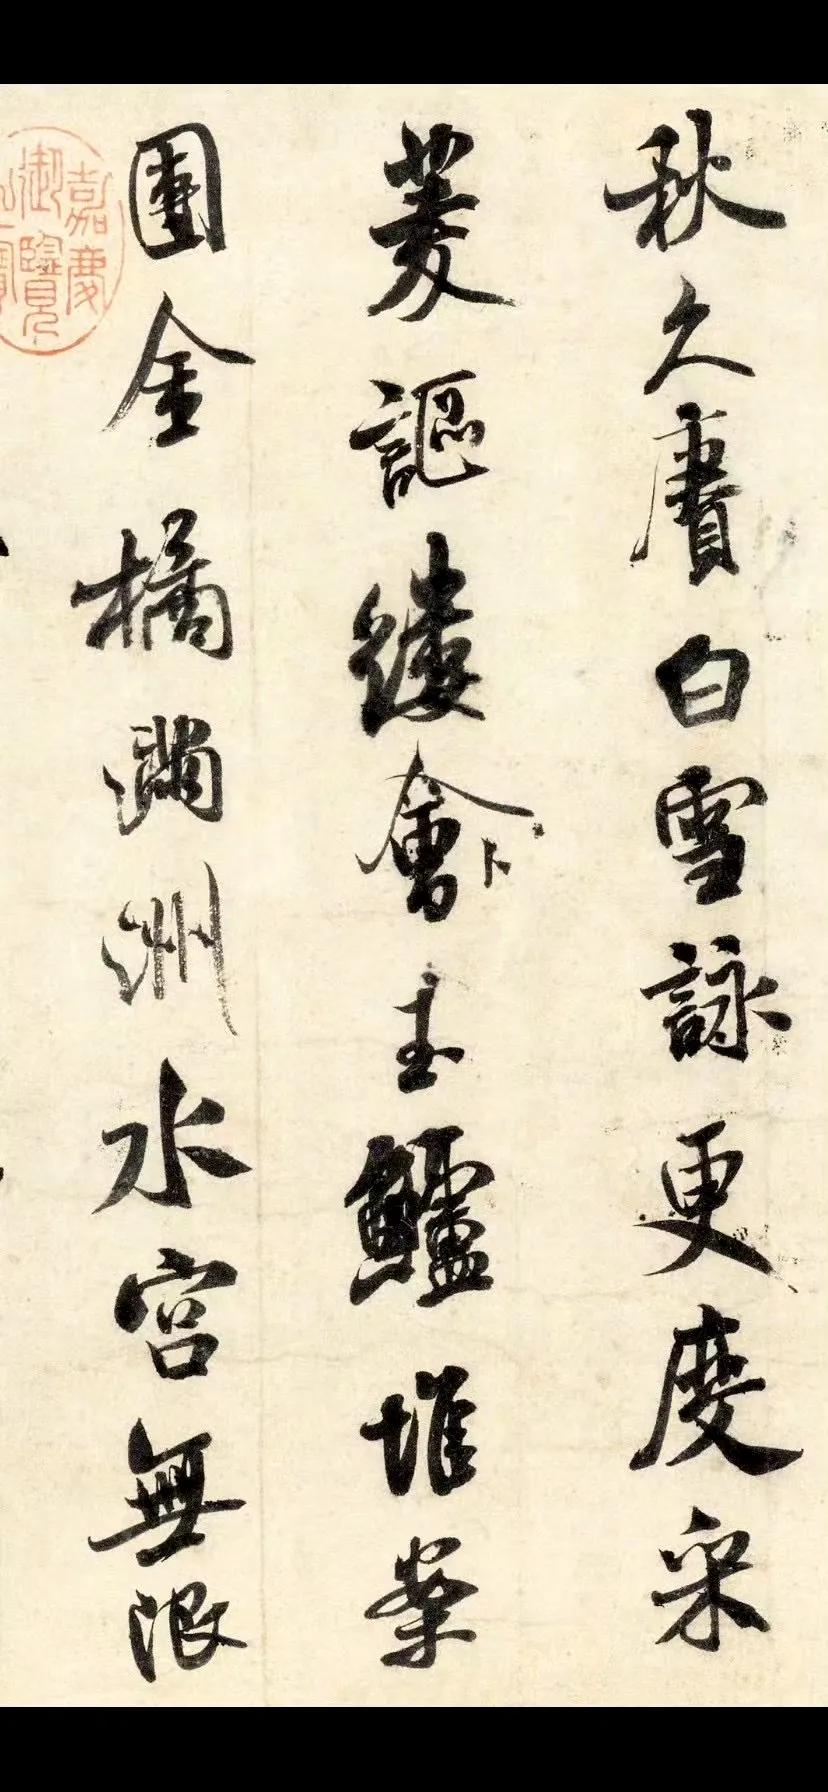 秋久賡白雪詠更度采
菱謳縷會卜玉鱸堆案
團金橘滿洲水宮無限
嘉慶御覽之寶